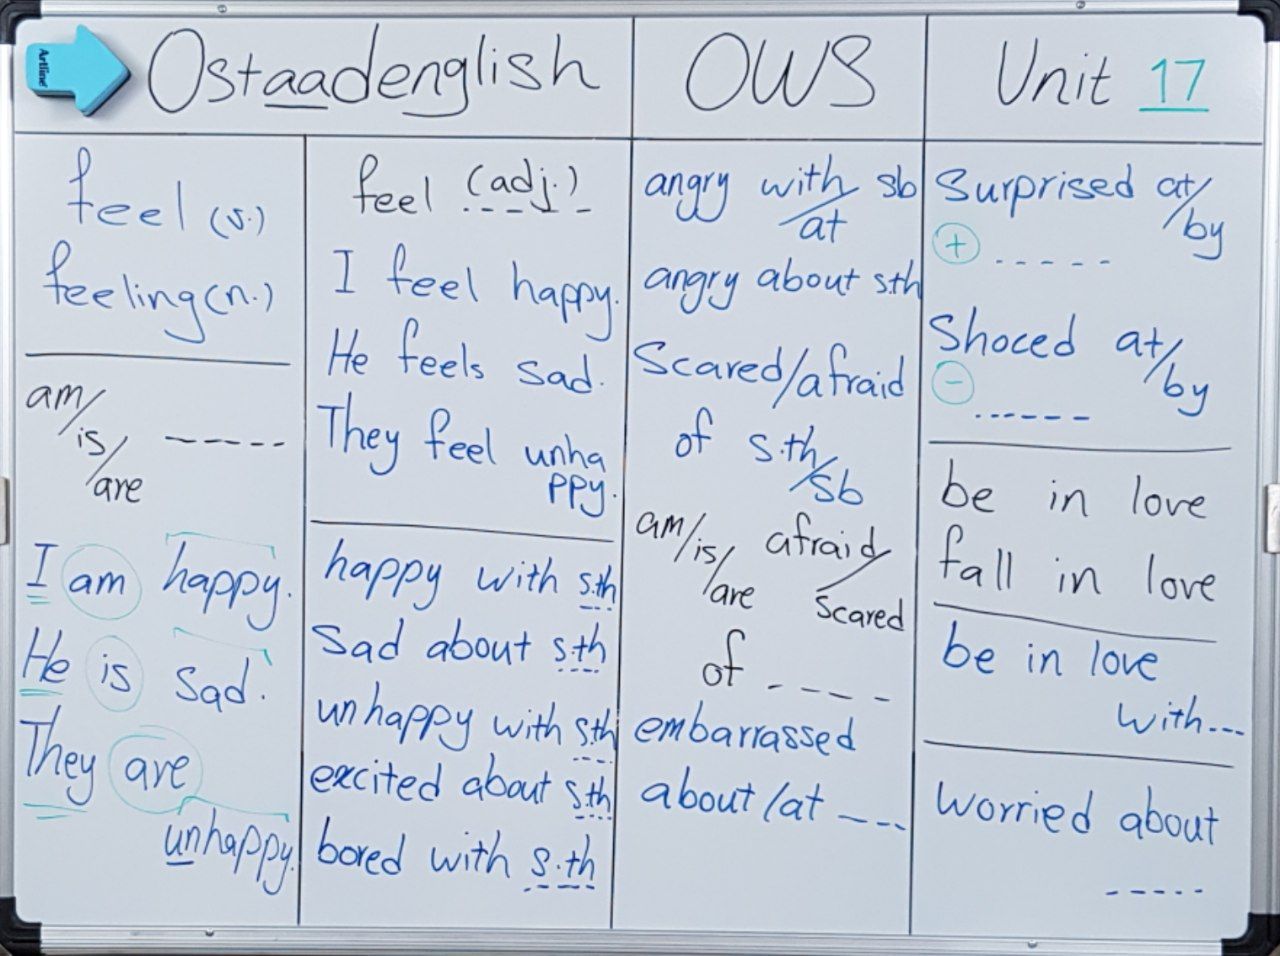 Artline
Ostaadenglish
OWS
Unit 17
feel (v.)
feeling (n.)
am/is/are -----
I am happy.
He is sad.
They are
unhappy.
feel (adj.)
I feel happy.
He feels sad.
They feel unha
ppy.
happy with s.th
Sad about s.th
unhappy with s.th
excited about s.th
bored with s.th
angry with/at sb
angry about sth
Scared/afraid
of s.th/sb
am/is/are afraid/scared
of ----
embarrassed
about/at ---
Surprised at/by
+ -----
Shoced at/by
- ------
be in love
fall in love
be in love
with...
Worried about
-----